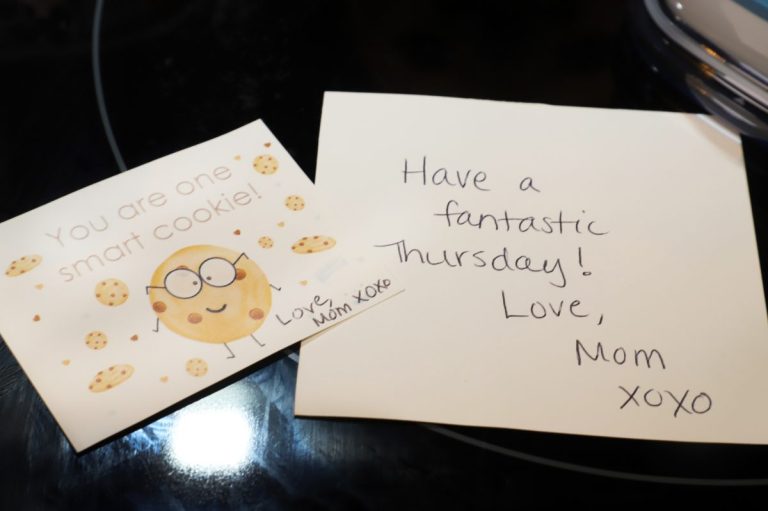 You are one
smart cookie!
Love,
Mom XOXO
Have a
fantastic
Thursday!
Love,
Mom
XOXO